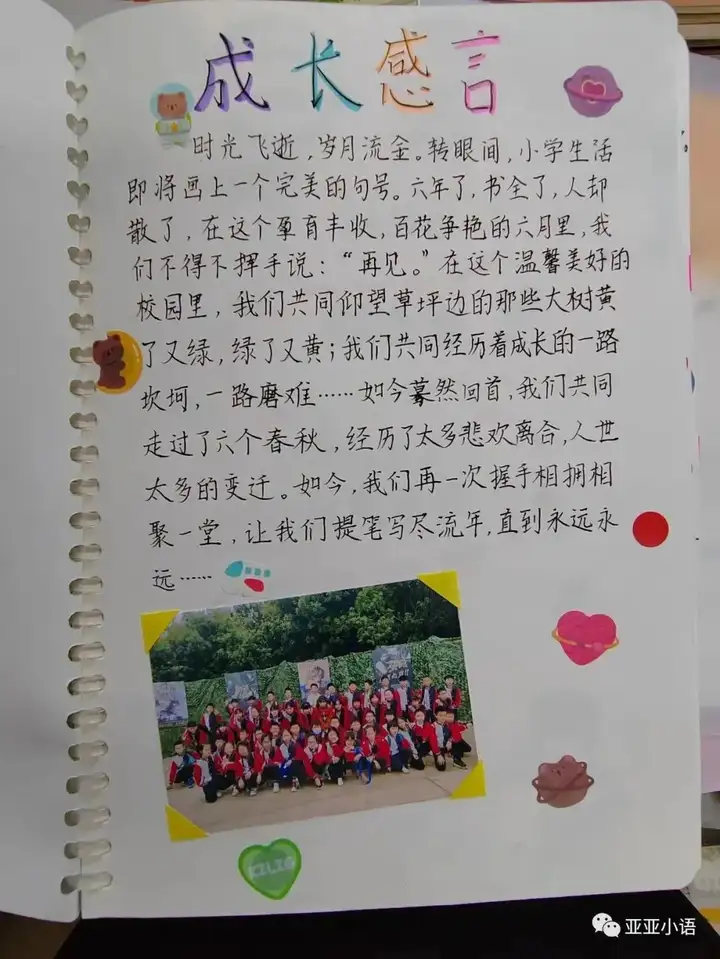 成长感言
时光飞逝，岁月流金。转眼间，小学生活
即将画上一个完美的句号。六年了，书全了，人却
散了，在这个孕育丰收，百花争艳的六月里，我
们不得不挥手说：“再见。”在这个温馨美好的
校园里，我们共同仰望草坪边的那些大树黄
了又绿，绿了又黄；我们共同经历着成长的一路
坎坷，一路磨难……如今蓦然回首，我们共同
走过了六个春秋，经历了太多悲欢离合，人世
太多的变迁。如今，我们再一次握手相拥相
聚一堂，让我们提笔写尽流年，直到永远永
远……
亚亚小语